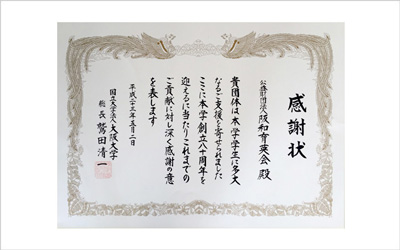 感謝状
公益財団法人阪和育英会 殿
貴団体は本学学生に多大
なるご支援を寄せられました
ここに本学創立八十周年を
迎えるに当たりこれまでの
ご貢献に対し深く感謝の意
を表します
平成二十三年五月二日
国立大学法人大阪大学
総長 鷲田清一